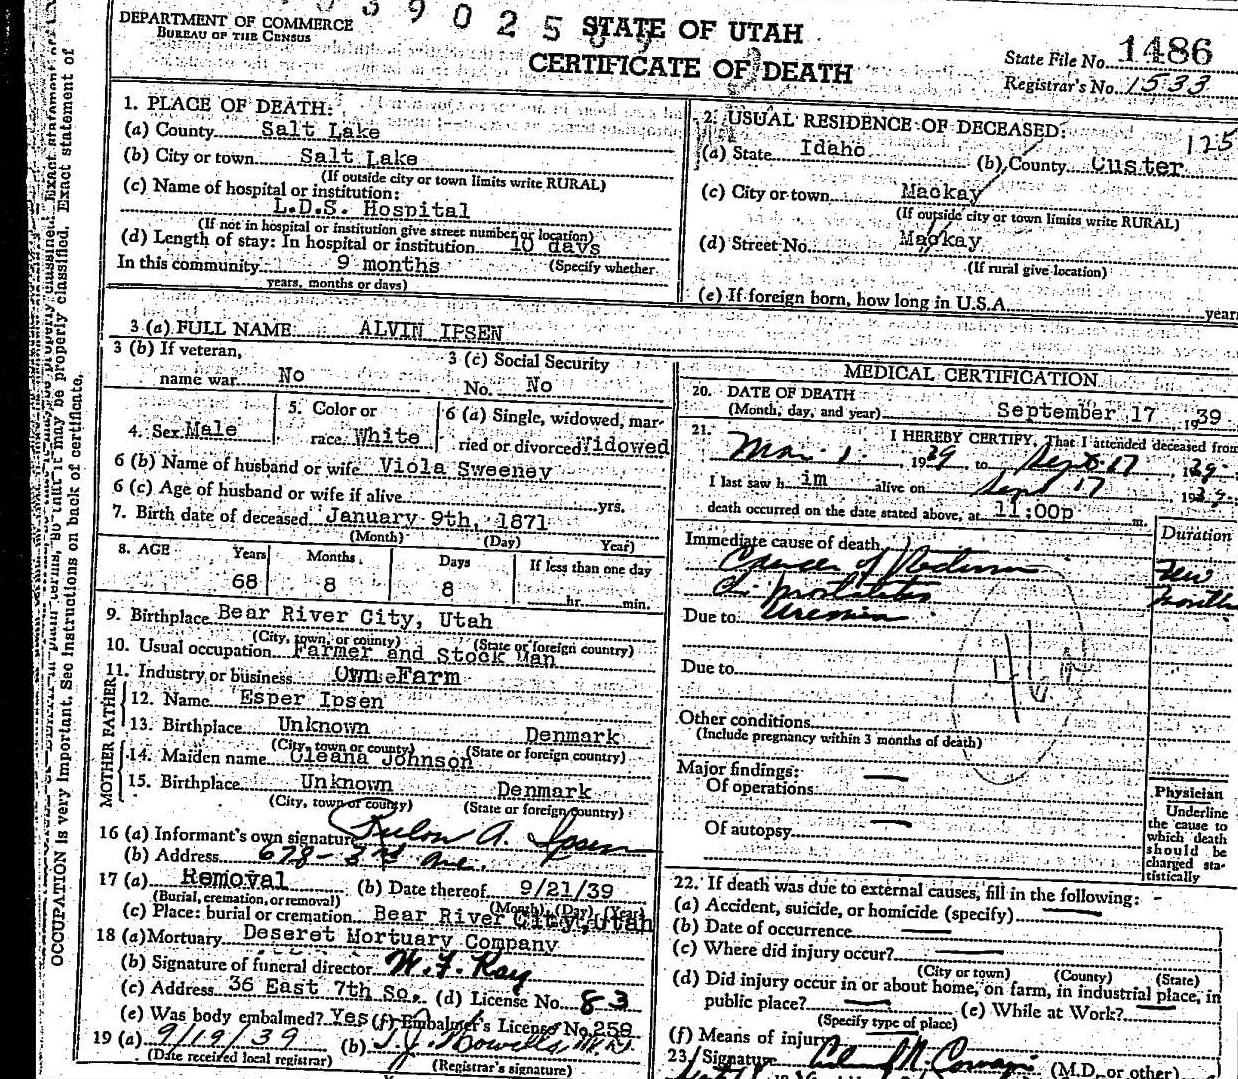 DEPARTMENT OF COMMERCE
BUREAU OF THE CENSUS
STATE OF UTAH
CERTIFICATE OF DEATH
State File No. 1486
Registrar's No. 1533
1. PLACE OF DEATH:
(a) County Salt Lake
(b) City or town Salt Lake
(If outside city or town limits write RURAL)
(c) Name of hospital or institution:
L.D.S. Hospital
(If not in hospital or institution give street number or location)
(d) Length of stay: In hospital or institution 10 days
In this community 9 months (Specify whether
years, months or days)
2. USUAL RESIDENCE OF DECEASED: 125
(a) State Idaho (b) County Custer
(c) City or town Mackay
(If outside city or town limits write RURAL)
(d) Street No. Mackay
(If rural give location)
(e) If foreign born, how long in U.S.A. years
3 (a) FULL NAME ALVIN IPSEN
3 (b) If veteran,
name war No
3 (c) Social Security
No. No
4. Sex Male
5. Color or
race White
6 (a) Single, widowed, mar-
ried or divorced Widowed
6 (b) Name of husband or wife Viola Sweeney
6 (c) Age of husband or wife if alive yrs.
7. Birth date of deceased January 9th, 1871
(Month) (Day) Year)
8. AGE Years Months Days If less than one day
68 8 8 hr. min.
9. Birthplace Bear River City, Utah
(City, town, or county) (State or foreign country)
10. Usual occupation Farmer and Stock Man
11. Industry or business Own Farm
FATHER
12. Name Esper Ipsen
13. Birthplace Unknown Denmark
(City, town or county) (State or foreign country)
MOTHER
14. Maiden name Oleana Johnson
15. Birthplace Unknown Denmark
(City, town or county) (State or foreign country)
16 (a) Informant's own signature Rulon A. Ipsen
(b) Address 678 - 3rd Ave.
17 (a) Removal (b) Date thereof 9/21/39
(Burial, cremation, or removal) (Month) (Day) (Year)
(c) Place: burial or cremation Bear River City, Utah
18 (a) Mortuary Deseret Mortuary Company
(b) Signature of funeral director W. F. Kay
(c) Address 36 East 7th So. (d) License No. 83
(e) Was body embalmed? Yes (f) Embalmer's License No. 259
19 (a) 9/19/39 (b) T. J. Howells M.D.
(Date received local registrar) (Registrar's signature)
MEDICAL CERTIFICATION
20. DATE OF DEATH
(Month, day, and year) September 17 1939
21. I HEREBY CERTIFY, That I attended deceased from
Mar. 1, 1939 to Sept 17, 1939
I last saw him alive on Sept 17, 1939
death occurred on the date stated above, at 11:00p m.
Duration
Immediate cause of death
Cancer of
Few
months
Due to Uremia
Due to
Other conditions
(Include pregnancy within 3 months of death)
Major findings:
Of operations
Of autopsy
Physician
Underline
the cause to
which death
should be
charged sta-
tistically
22. If death was due to external causes, fill in the following:
(a) Accident, suicide, or homicide (specify)
(b) Date of occurrence
(c) Where did injury occur?
(City or town) (County) (State)
(d) Did injury occur in or about home, on farm, in industrial place, in
public place? (e) While at Work?
(Specify type of place)
(f) Means of injury
23. Signature (M.D. or other)
OCCUPATION is very important. See instructions on back of certificate.
so that it may be properly classified. Exact statement of